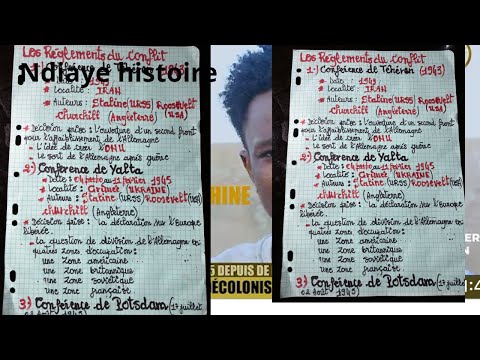 Ndiaye histoire
Les Réglements du conflit
1-) Conférence de Téhéran (1943)
* Date : 1943
* Localité : IRAN
* Auteurs : Staline (URSS) Roosevelt (USA)
churchill (Angleterre)
* Décision prise : L'ouverture d'un second front
pour l'affaiblissement de l'Allemagne
_ L'idée de créer l'ONU
_ Le sort de l'Allemagne après guerre
2-) Conférence de Yalta
* Date : 04 au 11 février 1945
* Localité : Crimée (UKRAINE)
* Auteurs : Staline (URSS) Roosevelt (USA)
churchill (Angleterre)
* Décision prise : la déclaration sur l'Europe
libérée.
_ La question de division de l'Allemagne en
quatre zones d'occupation :
. une zone américaine
. une zone britannique
. une zone soviétique
. une zone française.
3-) Conférence de Potsdam (17 juillet
02 Août 1945)
HINE
5 DEPUIS DE
DÉCOLONIS
Les Réglements du conflit
1-) Conférence de Téhéran (1943)
* Date : 1943
* Localité : IRAN
* Auteurs : Staline (URSS) Roosevelt (USA)
churchill (Angleterre)
* Décision prise : L'ouverture d'un second front
pour l'affaiblissement de l'Allemagne
_ L'idée de créer l'ONU
_ Le sort de l'Allemagne après guerre
2-) Conférence de Yalta
* Date : 04 au 11 février 1945
* Localité : Crimée (UKRAINE)
* Auteurs : Staline (URSS) Roosevelt (USA)
churchill (Angleterre)
* Décision prise : la déclaration sur l'Europe
libérée.
_ La question de division de l'Allemagne en
quatre zones d'occupation :
. une zone américaine
. une zone britannique
. une zone soviétique
. une zone française.
3-) Conférence de Potsdam (17 juillet
02 Août 1945)
ER
N
1:4